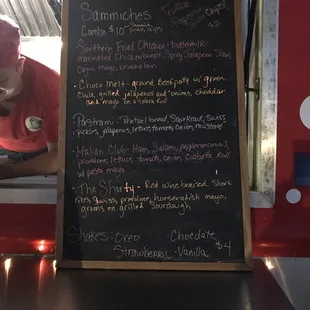 Sammiches
Combo $10
$2
Southern Fried Chicken - buttermilk
marinated Chicken breast, Spicy Jalapeno Slaw,
Cajun mayo, brioche bun
Chuck Melt - ground Beef patty w/ green
Chile, grilled jalapenos and onions, cheddar
and mayo on a
Pastrami - Pretzel bread, Sauerkraut, Swiss,
pickles, jalapenos, lettuce, tomato, onion, mustard
Italian Club - Ham, Salami, pepperoni
provolone, lettuce, tomato, onion, Ciabatta Roll
w/ pesto mayo
The Shorty - Red wine braised Short
Ribs, Swiss, provolone, horseradish mayo,
greens on grilled Sourdough
Shakes: Oreo - Chocolate
Strawberry - Vanilla $4